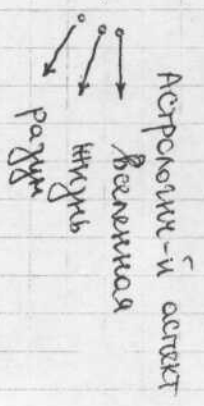 Астрологич-й аспект
вселенная
жизнь
разум